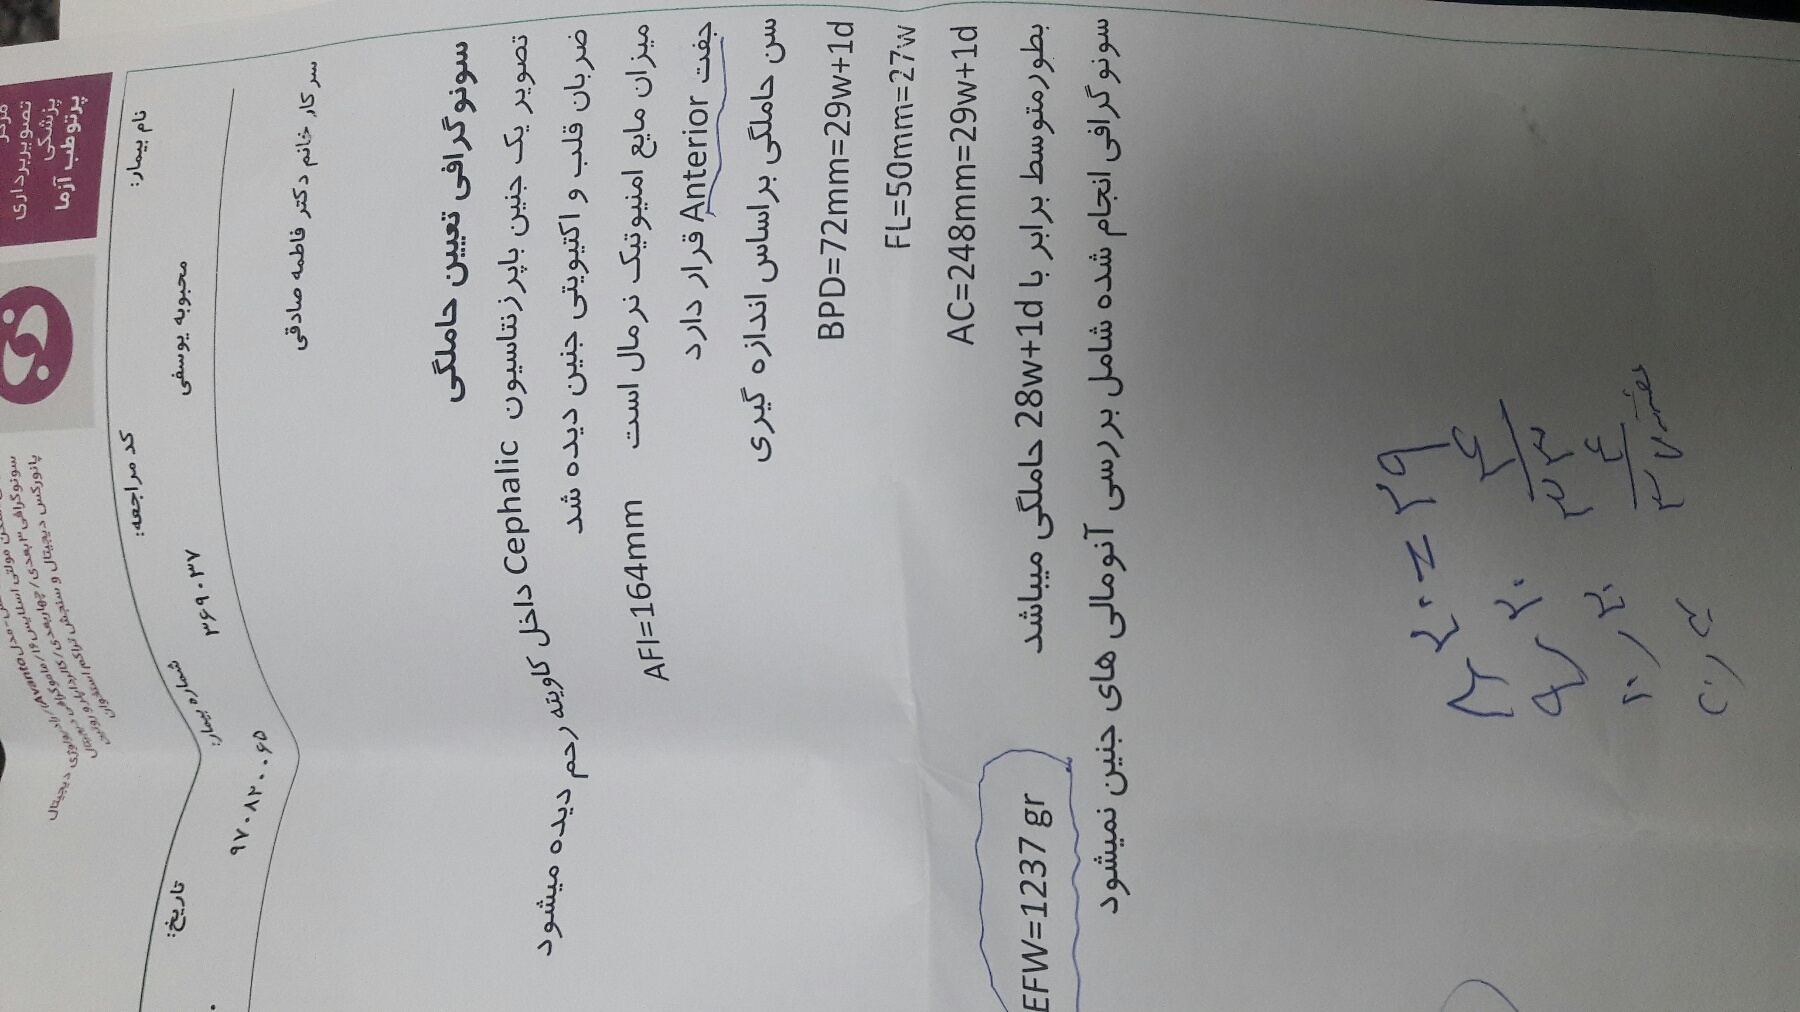 مرکز
تصویربرداری
پزشکی
پرتوطب آزما
نام بیمار:
محبوبه یوسفی
کد مراجعه:
۳۶۹۰۳۷
شماره بیمار:
۹۷۰۸۲۰۰۶۵
تاریخ:
سرکار خانم دکتر فاطمه صادقی
سونوگرافی تعیین حاملگی
تصویر یک جنین باپرزنتاسیون Cephalic داخل کاویته رحم دیده میشود
ضربان قلب و اکتیویتی جنین دیده شد
میزان مایع امنیوتیک نرمال است AFI=164mm
جفت Anterior قرار دارد
سن حاملگی براساس اندازه گیری
BPD=72mm=29w+1d
FL=50mm=27w
AC=248mm=29w+1d
بطورمتوسط برابر با 28w+1d حاملگی میباشد EFW=1237 gr
سونوگرافی انجام شده شامل بررسی آنومالی های جنین نمیشود